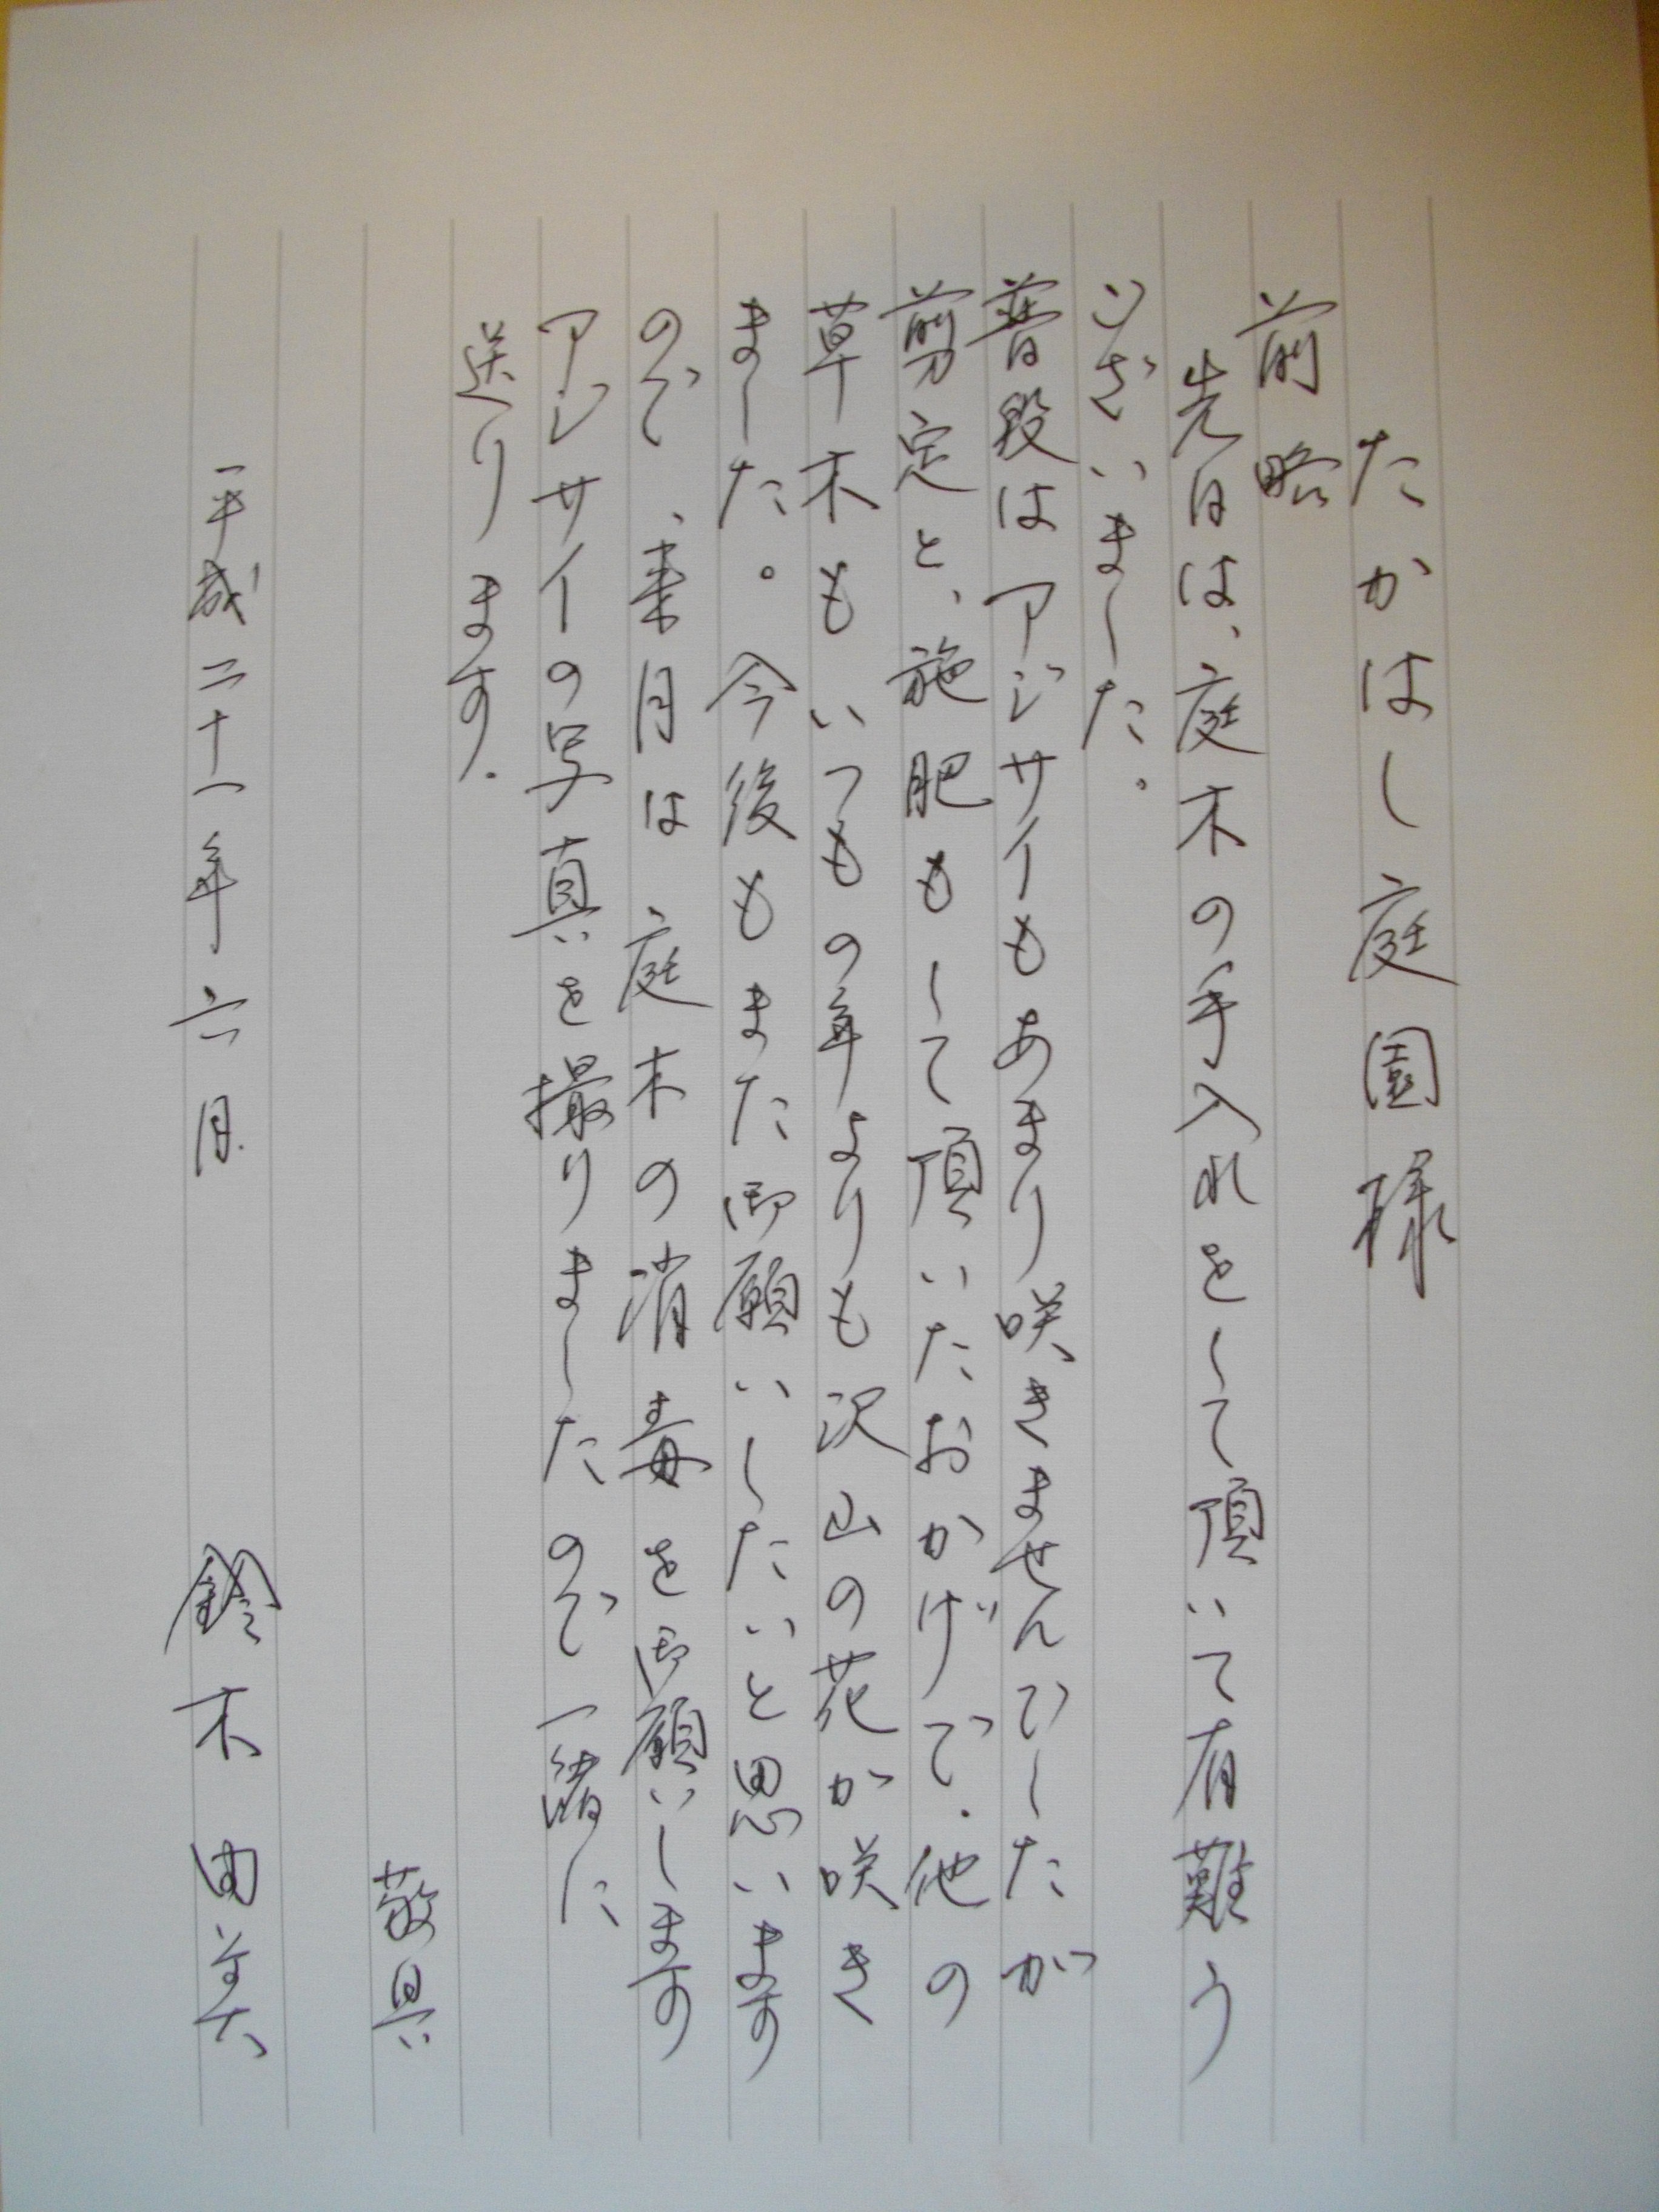 たかはし庭園様
前略
先日は、庭木の手入れをして頂いて有難う
ございました。
普段はアジサイもあまり咲きませんでしたが
剪定と、施肥もして頂いたおかげで、他の
草木もいつもの年よりも沢山の花が咲き
ました。今後もまた御願いしたいと思います
ので、来月は庭木の消毒を御願いします
アジサイの写真を撮りましたので一緒に
送ります。
敬具
平成二十一年六月 鈴木由美